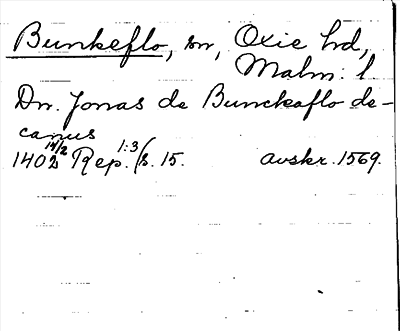 Bunkeflo, sn, Oxie hd,
Malm. l.
Dn. Jonas de Bunckaflo de-
canus
1402 14/2 Rep. 1:3 s. 15. avskr. 1569.